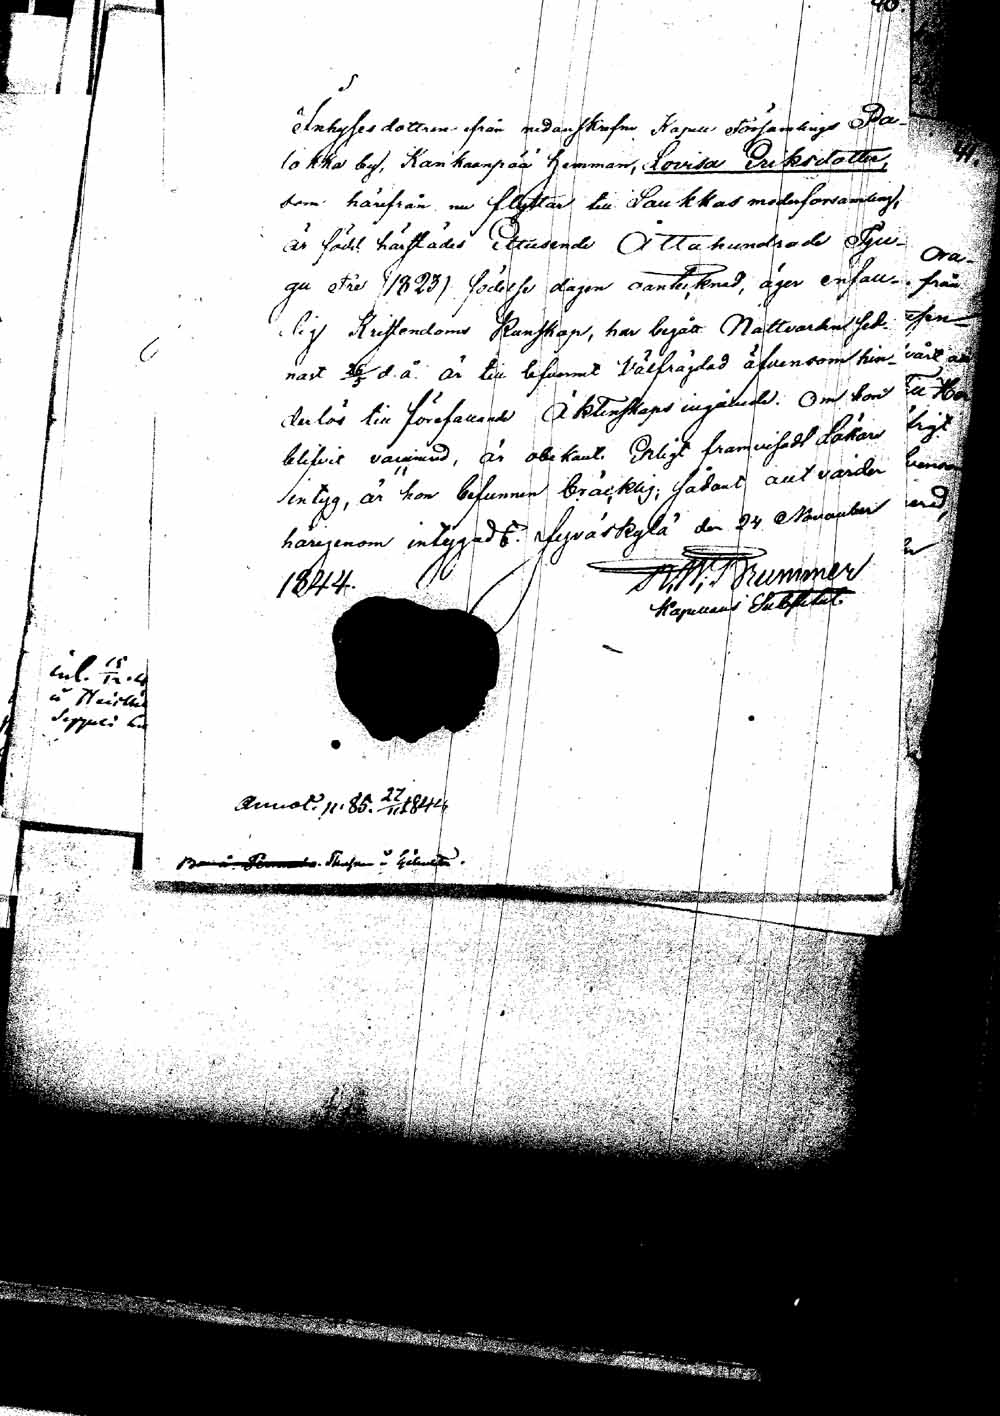 40.
Inhysesdottren ifrån nedanskrefne Kapell Församlings Pa-
lokka by, Kankaanpää hemman, Lovisa Eriksdotter,
som härifrån nu flyttar till Laukkas moderförsamling,
är född härstädes Ettusende Åttahundrade Tju-
gu Tre (1823) födelse dagen oantecknad, äger enfall-
dig Kristendoms Kunskap, har begått Nattvarden sed-
nast d.å. är till lefvernet Välfrägdad äfvensom hin-
derlös till förefallande Äktenskaps ingående. Om hon
blifvit vaccinerad, är obekant. Enligt framvisadt Läkare
intyg, är hon befunnen bräcklig; sådant allt varder
härigenom intygadt. Jyväskylä den 24 November
1844.
Brummer
Kapellans Substitut
Annot. N: 85. 27/11 1844
41.
från